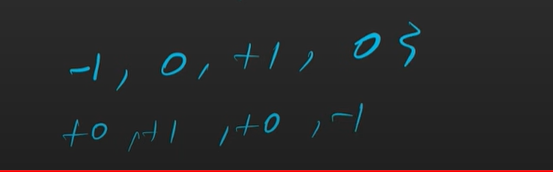 -1, 0, +1, 0}
+0, +1, +0, -1